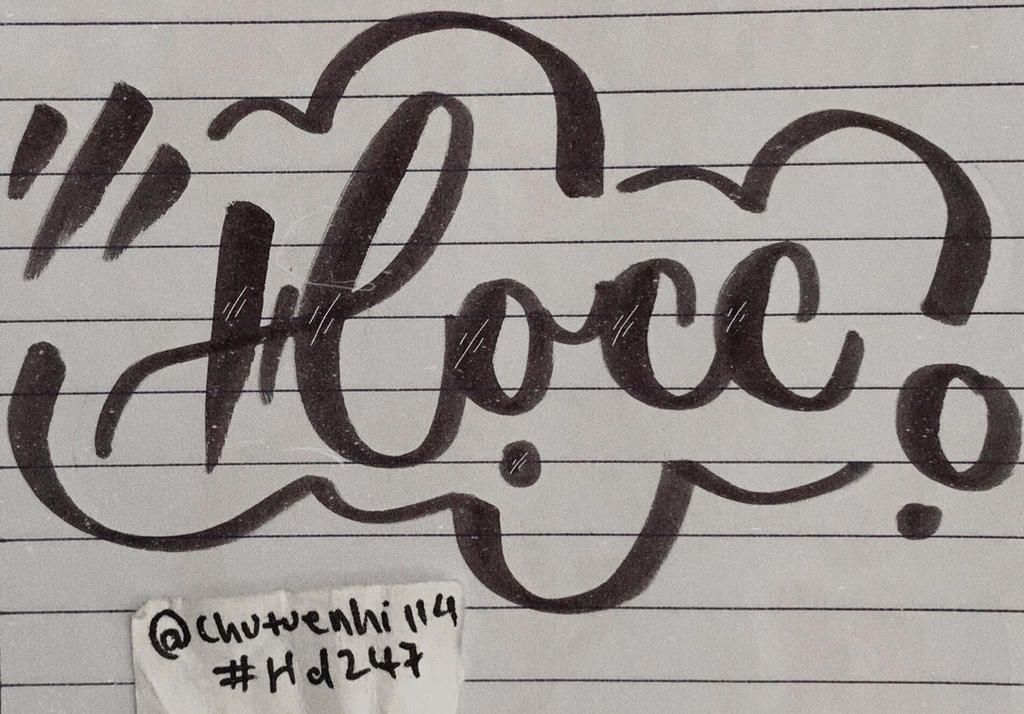 Học
@chutuenhi114
#Hd247